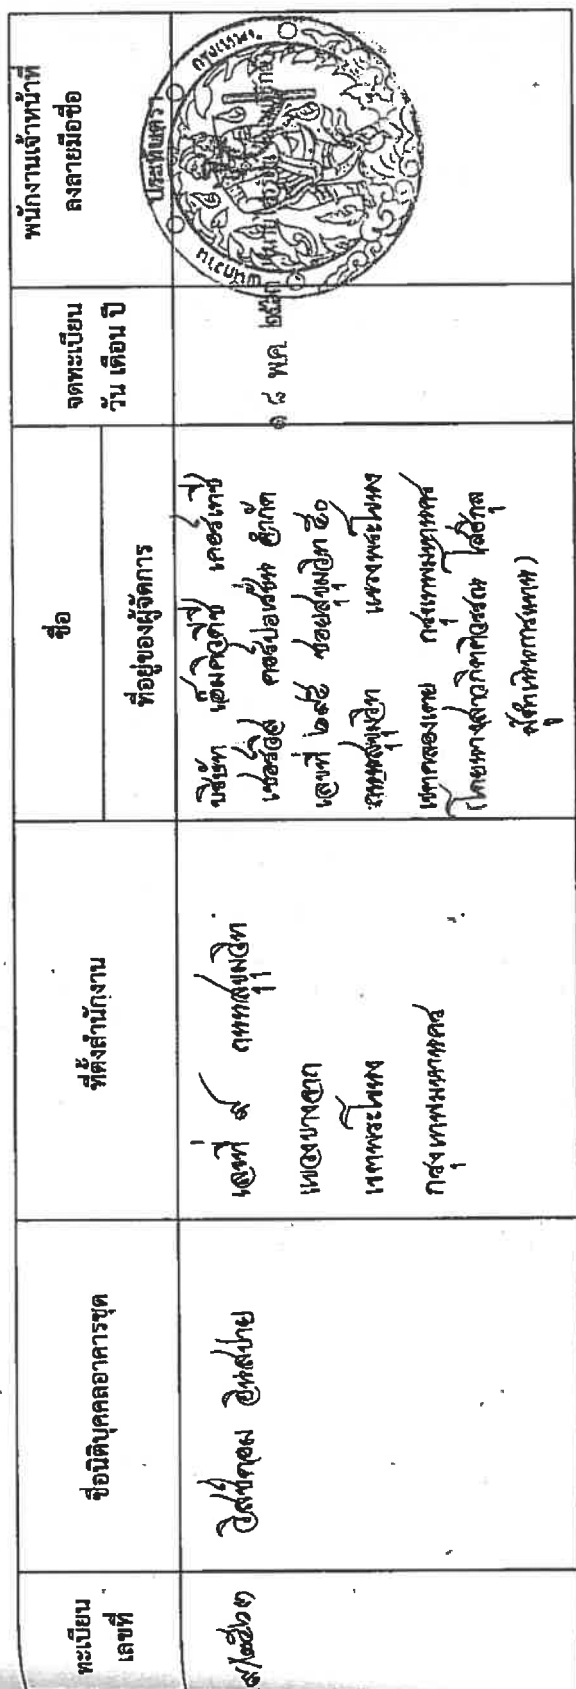 ทะเบียน
เลขที่
ชื่อนิติบุคคลอาคารชุด
ที่ตั้งสำนักงาน
ชื่อ
ที่อยู่ของผู้จัดการ
จดทะเบียน
วัน เดือน ปี
พนักงานเจ้าหน้าที่
ลงลายมือชื่อ
๙/๒๕๖๓
วิสซ์ดอม อินสปาย
เลขที่ ๙ ถนนสุขุมวิท
แขวงบางจาก
เขตพระโขนง
กรุงเทพมหานคร
บริษัท เอ็มคิวดีซี เคอร์เทซี
เซอร์วิส คอร์ปอเรชั่น จำกัด
เลขที่ ๒๙๕ ซอยสุขุมวิท ๕๐
ถนนสุขุมวิท แขวงพระโขนง
เขตคลองเตย กรุงเทพมหานคร
(โดยนางสาว
ผู้ดำเนินการแทน)
๑๘ พ.ค. ๒๕๖๓